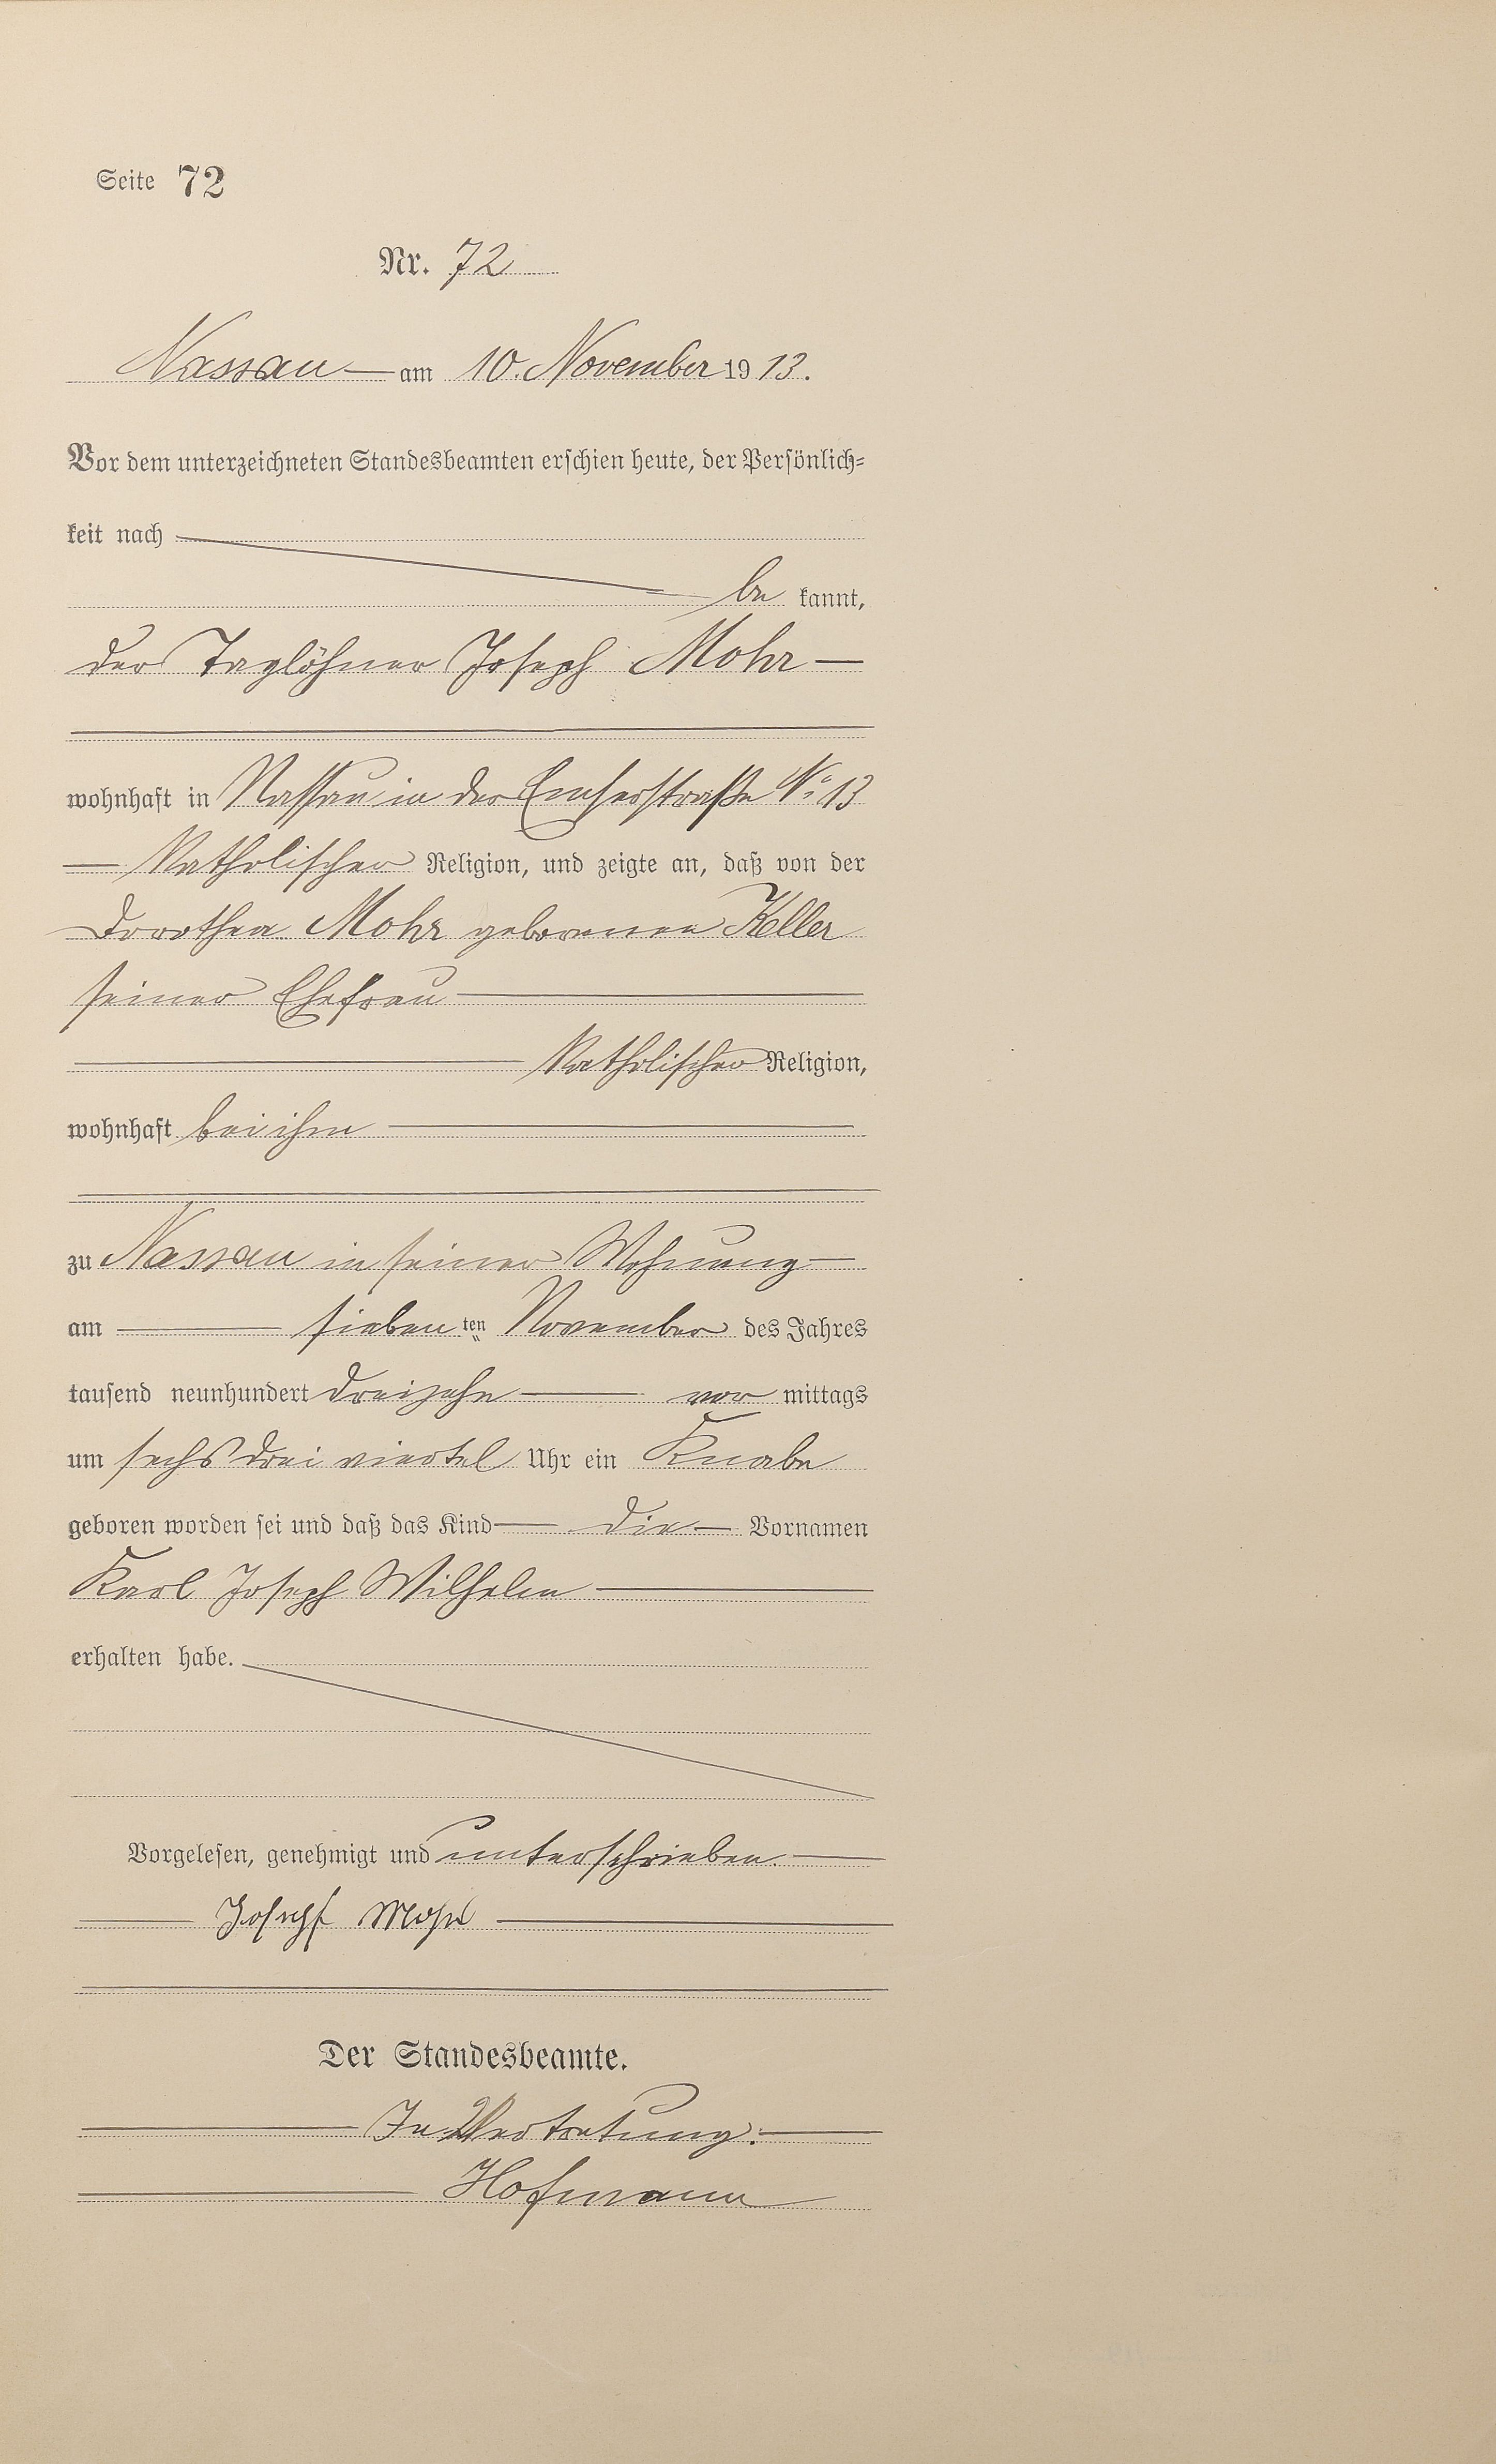 Seite 72
Nr. 72
Nassau am 10. November 1913.
Vor dem unterzeichneten Standesbeamten erschien heute, der Persönlich-
keit nach
be kannt,
der Taglöhner Joseph Mohr
wohnhaft in Nassau in der Emserstraße No 13
Katholischer Religion, und zeigte an, daß von der
Dorothea Mohr geborenen Keller
seiner Ehefrau
Katholischer Religion,
wohnhaft bei ihm
zu Nassau in seiner Wohnung
am siebenten November des Jahres
tausend neunhundert dreizehn vor mittags
um sechs drei viertel Uhr ein Knabe
geboren worden sei und daß das Kind die Vornamen
Karl Joseph Wilhelm
erhalten habe.
Vorgelesen, genehmigt und unterschrieben.
Joseph Mohr
Der Standesbeamte.
In Vertretung:
Hofmann